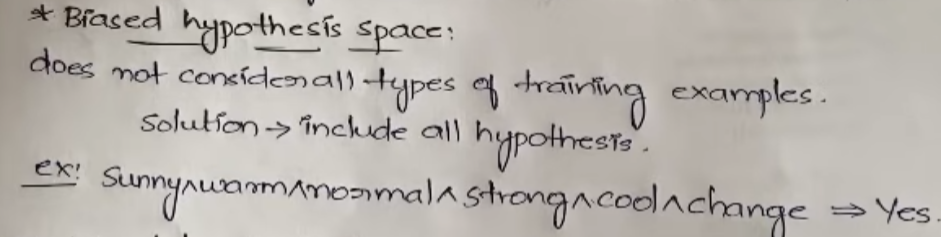 * Biased hypothesis space:
does not consider all types of training examples.
solution → include all hypothesis.
ex: Sunny∧warm∧normal∧strong∧cool∧change ⇒ Yes.